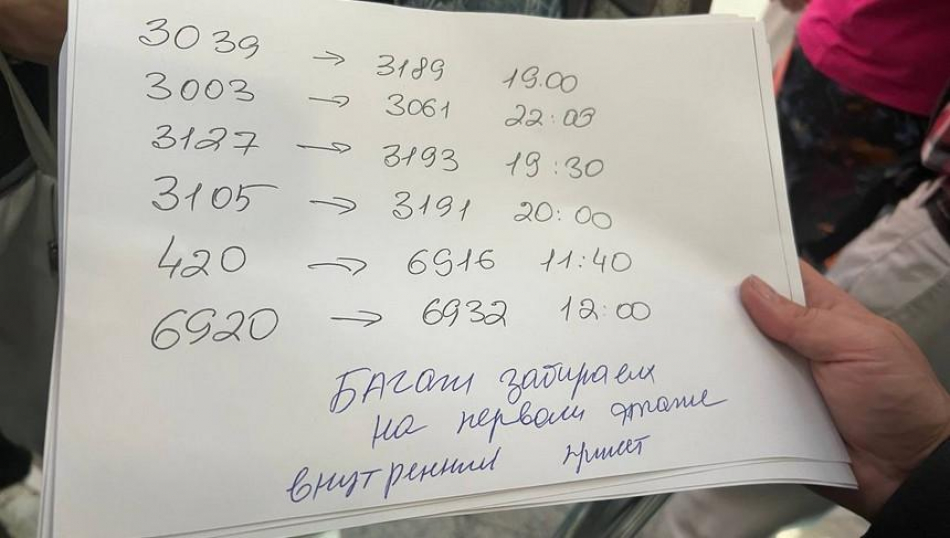 3039 → 3189 19.00
3003 → 3061 22:09
3127 → 3193 19:30
3105 → 3191 20:00
420 → 6916 11:40
6920 → 6932 12:00
Багаж забираем
на первом этаже
внутренний